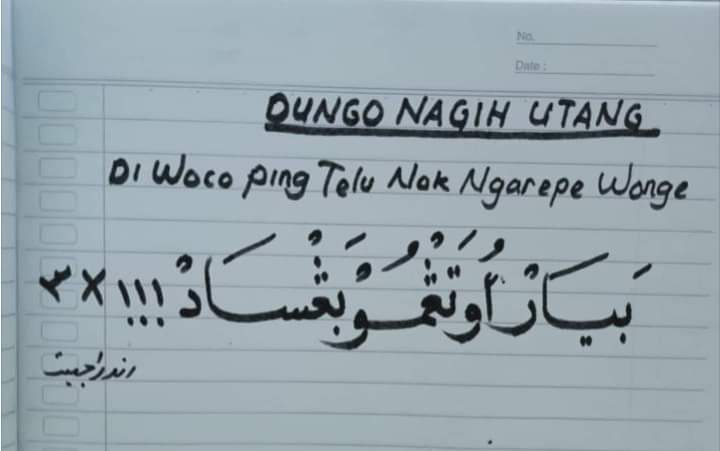 No.
Date :
DUNGO NAGIH UTANG
Di Woco ping Telu Nok Ngarepe Wonge
بَيَارْ اُوتَڠْمُو بَڠْسَادْ !!! X ٣